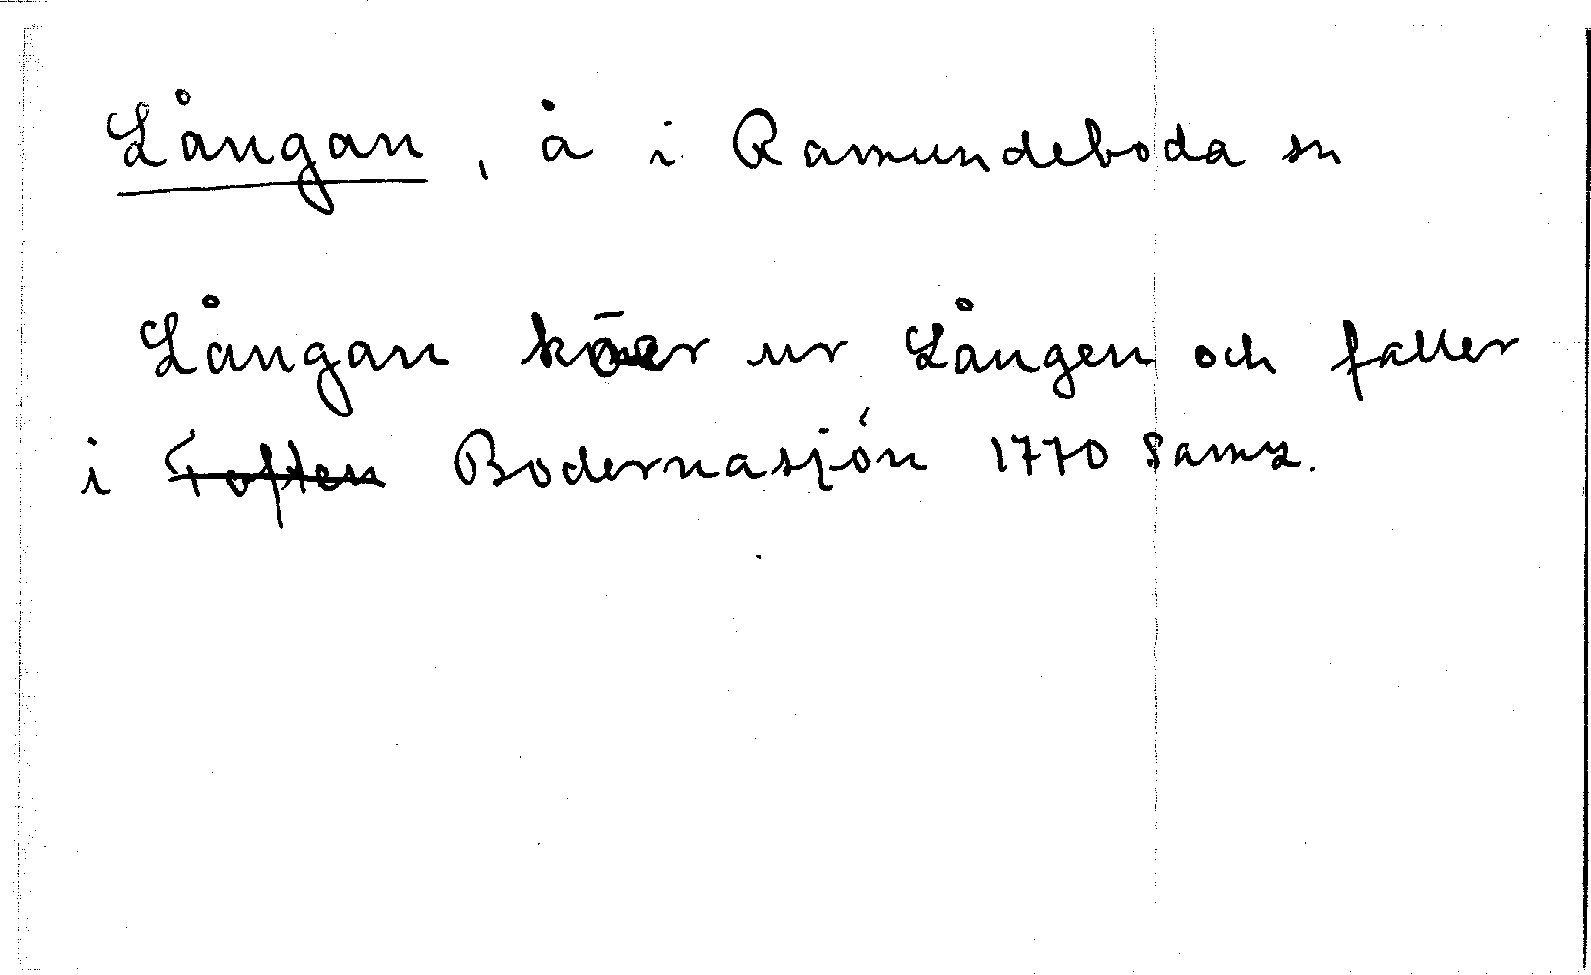 Långan, å i Ramundeboda sn
Långan kōmer ur Lången och faller
i Toften Bodernasjön 1770 Saml.